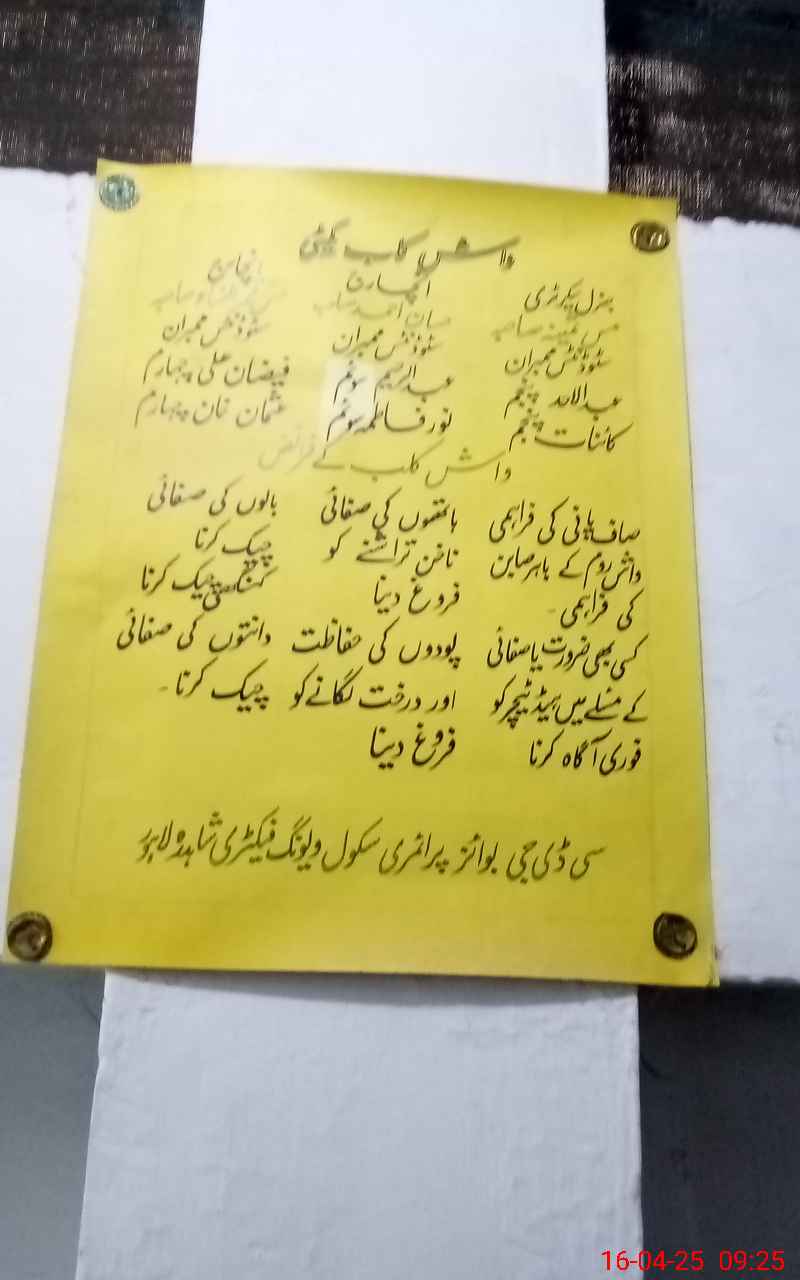 واش کلب کمیٹی
جنرل سیکرٹری انچارج
مس صاحبہ احمد صاحب
سٹوڈنٹس ممبران سٹوڈنٹس ممبران سٹوڈنٹس ممبران
عبدالاحد پنجم عبدالرحیم سوئم فیضان علی چہارم
کائنات پنجم نور فاطمہ سوئم عثمان خان چہارم
واش کلب کے فرائض
صاف پانی کی فراہمی ہاتھوں کی صفائی بالوں کی صفائی
واش روم کے باہر صابن ناخن تراشنے کو چیک کرنا
کی فراہمی۔ فروغ دینا چیک کرنا
کسی بھی ضرورت یا صفائی پودوں کی حفاظت دانتوں کی صفائی
کے مسئلے میں ہیڈ ٹیچر کو اور درخت لگانے کو چیک کرنا۔
فوری آگاہ کرنا فروغ دینا
سی ڈی جی بوائز پرائمری سکول ویونگ فیکٹری شاہدرہ لاہور
16-04-25 09:25